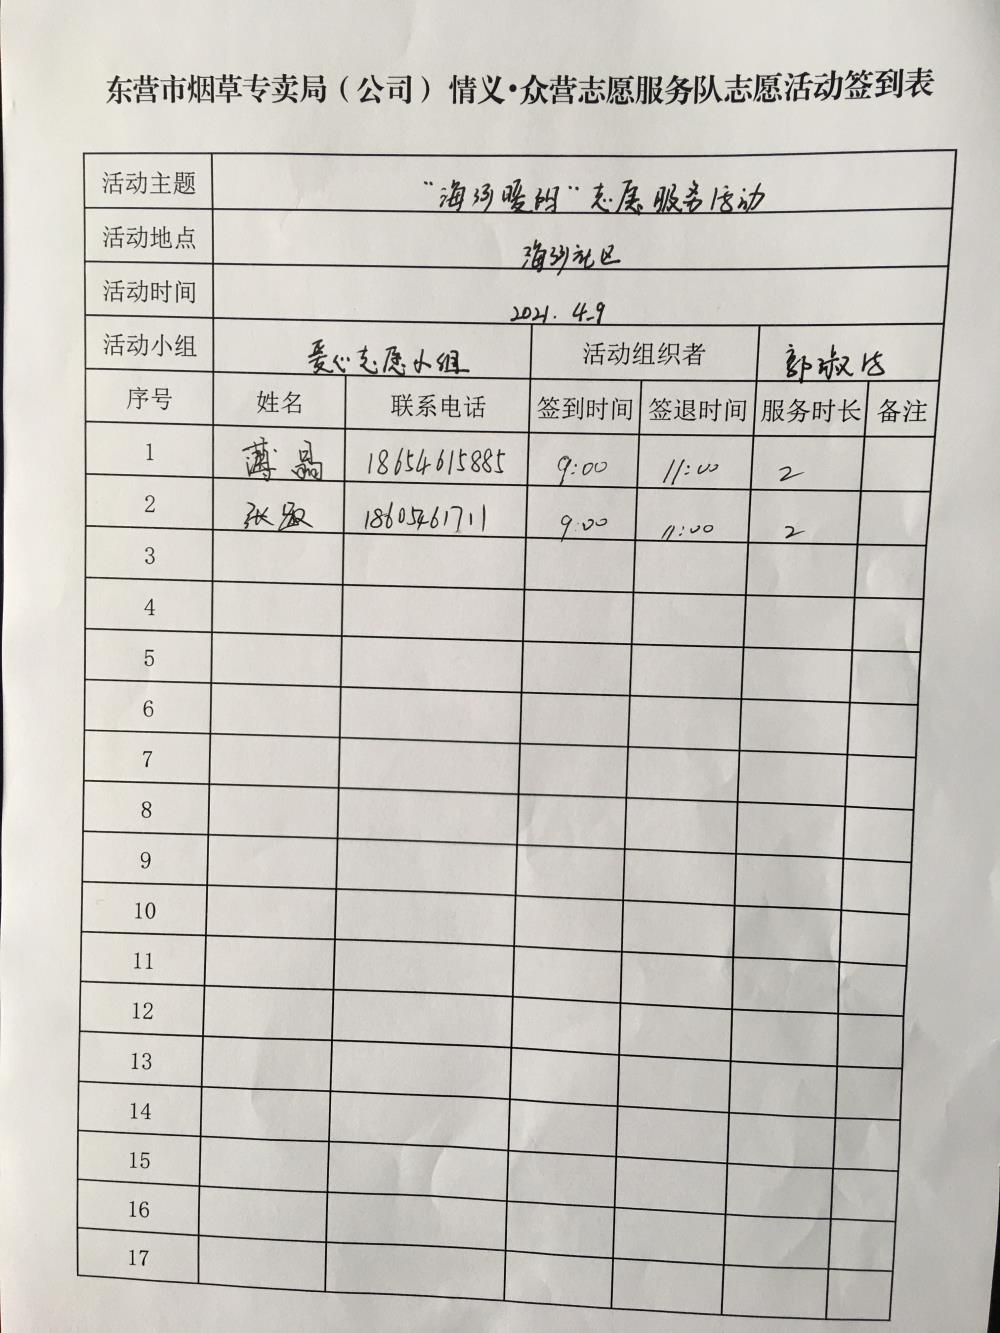 东营市烟草专卖局（公司）情义·众营志愿服务队志愿活动签到表
活动主题 “海河暖阳”志愿服务活动
活动地点 海河社区
活动时间 2021. 4.9
活动小组 爱心志愿小组 活动组织者 郭淑
序号 姓名 联系电话 签到时间 签退时间 服务时长 备注
1 薄晶 18654615885 9:00 11:00 2
2 张敏 18605461711 9:00 11:00 2
3
4
5
6
7
8
9
10
11
12
13
14
15
16
17